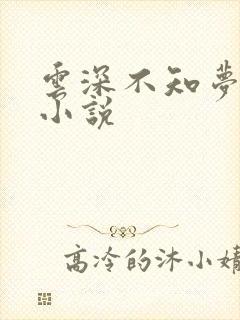 雲深不知夢
小說
高冷的沐小婧